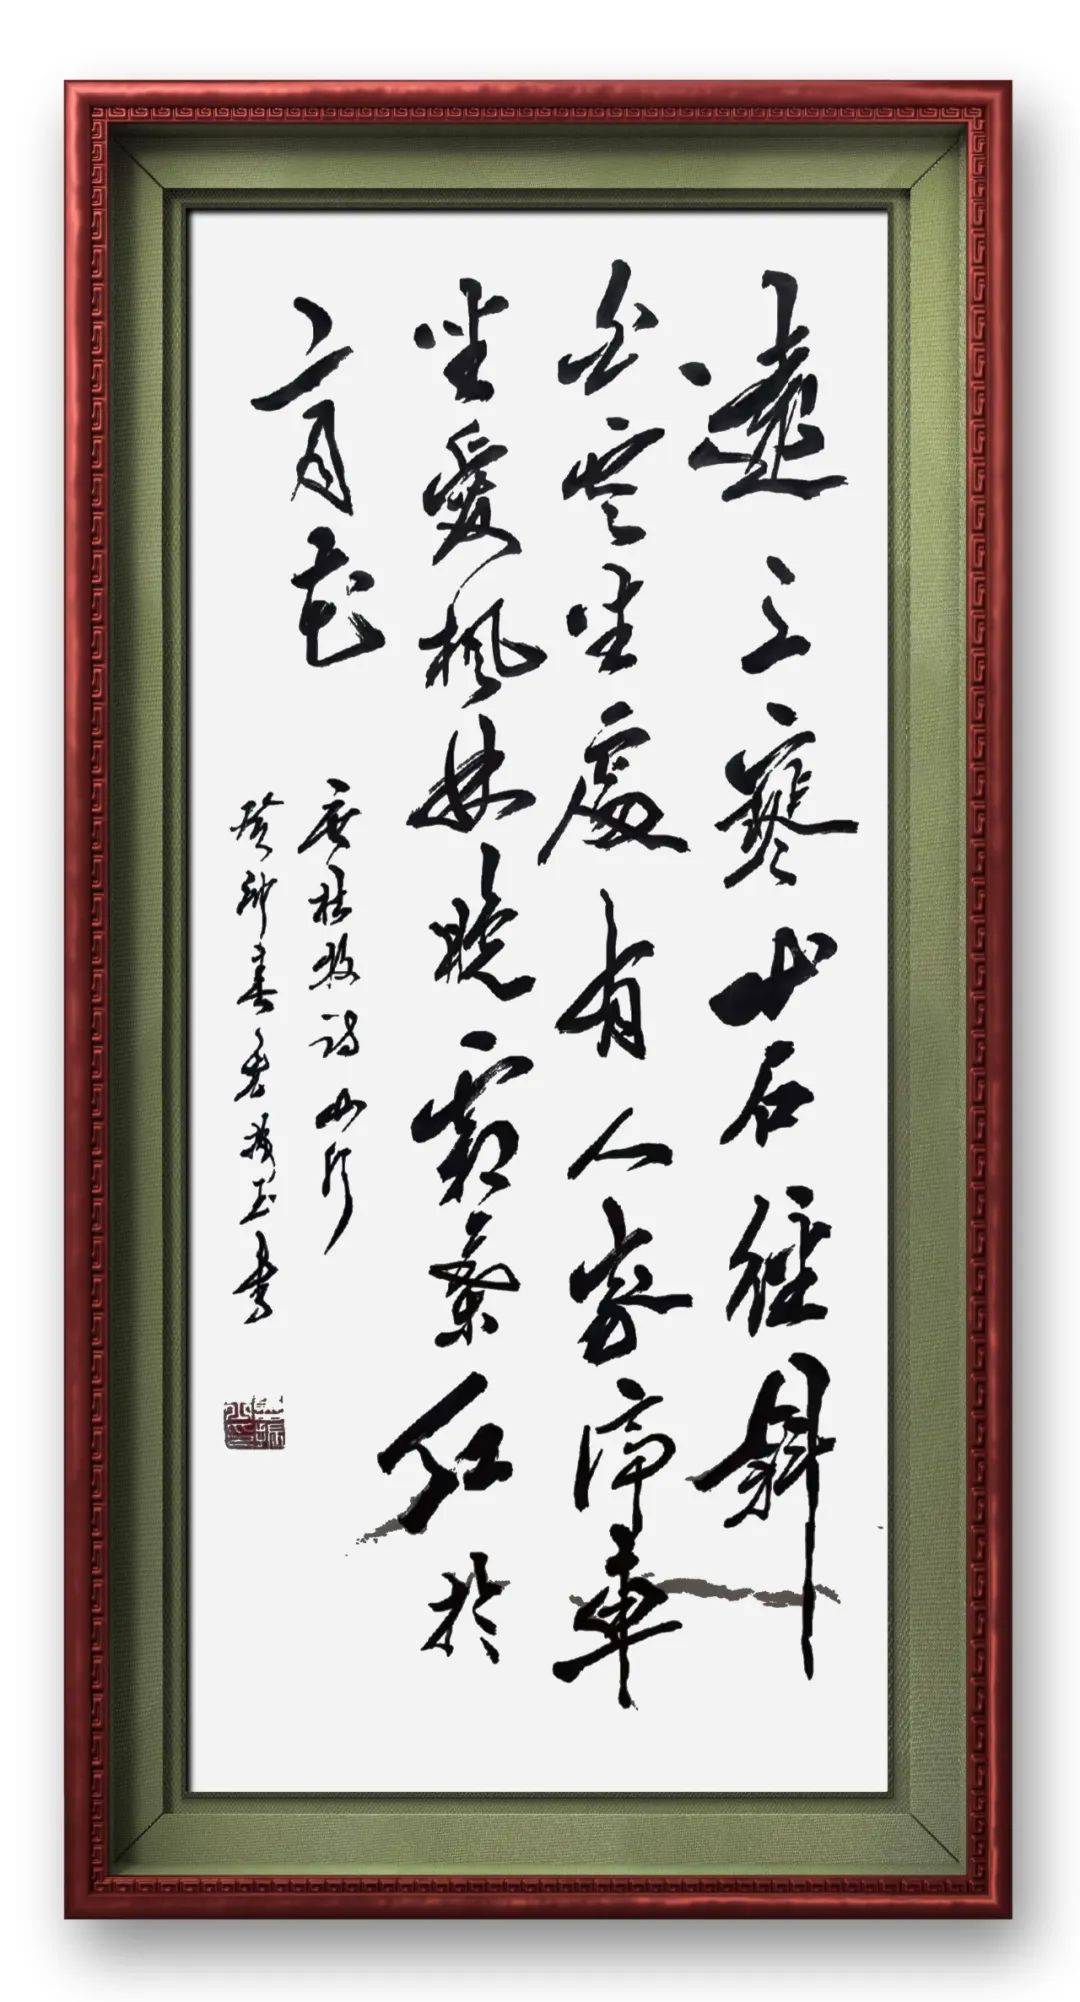 遠上寒山石徑斜
白雲生處有人家停車
坐愛楓林晚霜葉紅於
二月花
唐杜牧詩山行
癸卯春玉書